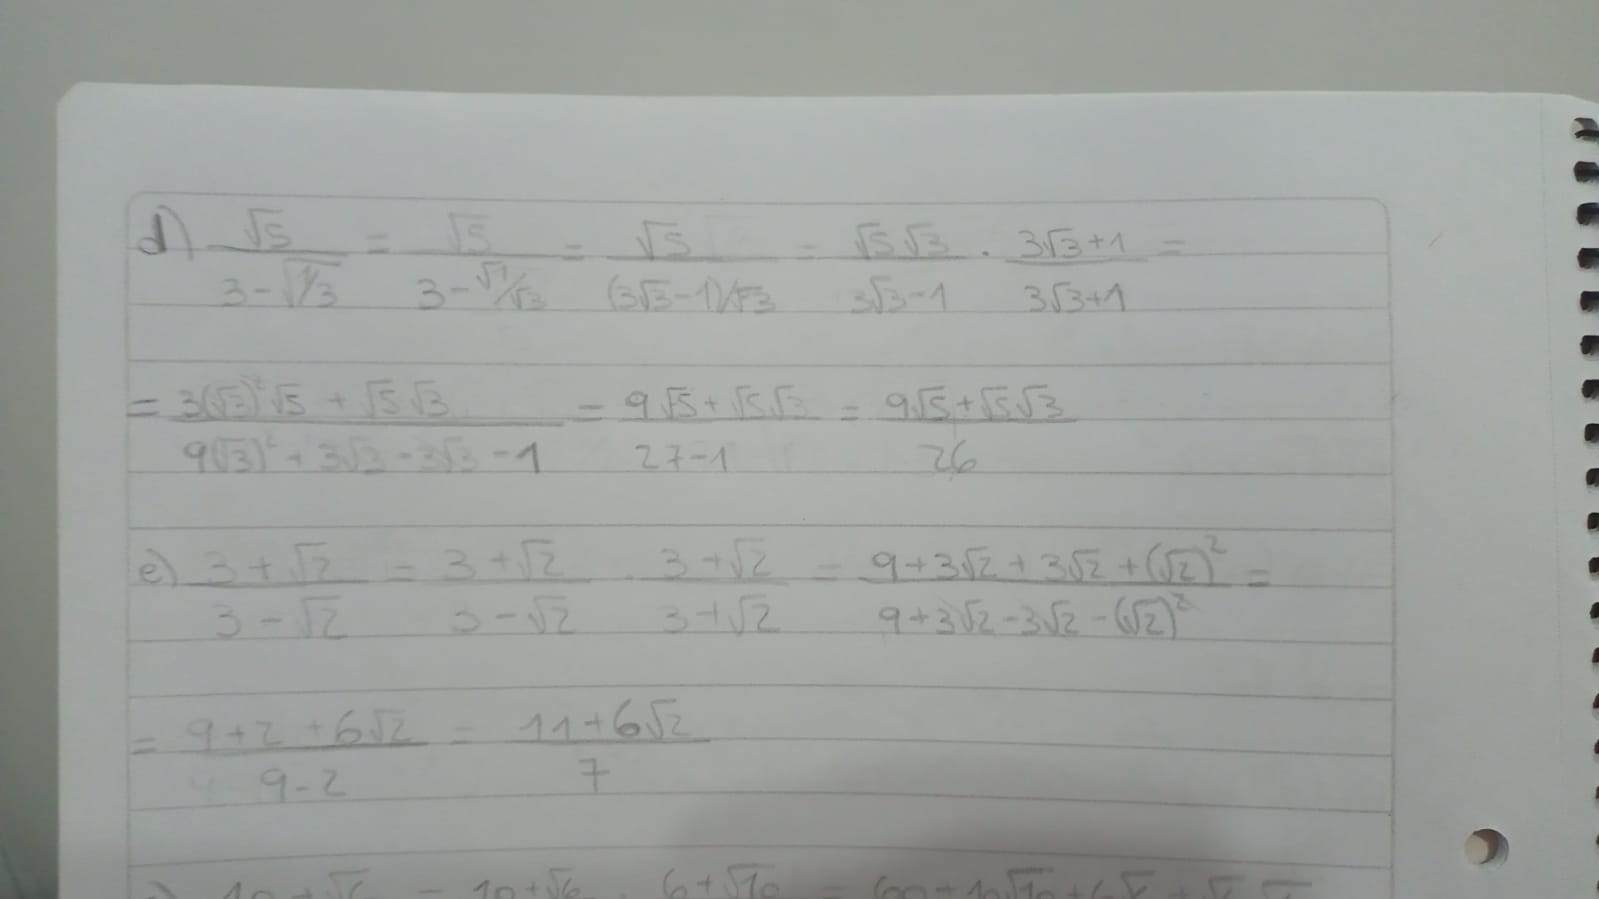 d) √5/(3-√(1/3)) = √5/(3-√1/√3) = √5/((3√3-1)/√3) = √5√3/(3√3-1) · (3√3+1)/(3√3+1) =
= (3(√3)²√5 + √5√3)/(9(√3)²+3√3-3√3-1) = (9√5+√5√3)/(27-1) = (9√5+√5√3)/26
e) (3+√2)/(3-√2) = (3+√2)/(3-√2) · (3+√2)/(3+√2) = (9+3√2+3√2+(√2)²)/(9+3√2-3√2-(√2)²) =
= (9+2+6√2)/(9-2) = (11+6√2)/7